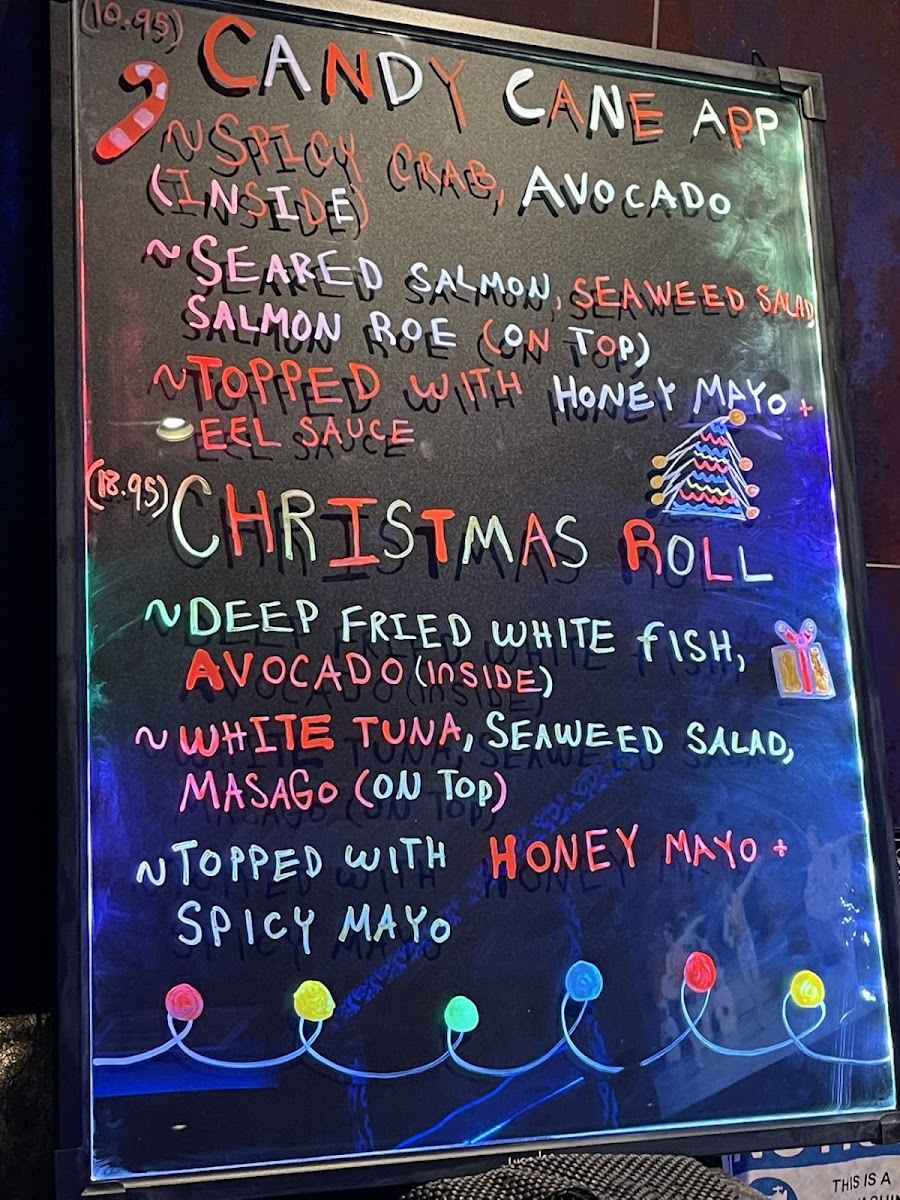 (10.95) CANDY CANE APP
~SPICY CRAB, AVOCADO
(INSIDE)
~SEARED SALMON, SEAWEED SALAD
SALMON ROE (ON TOP)
~TOPPED WITH HONEY MAYO +
EEL SAUCE
(18.95) CHRISTMAS ROLL
~DEEP FRIED WHITE fISH,
AVOCADO (INSIDE)
~WHITE TUNA, SEAWEED SALAD,
MASAGO (ON TOP)
~TOPPED WITH HONEY MAYO +
SPICY MAYO
THIS IS A